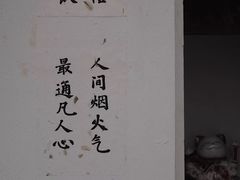 人间烟火气
最通凡人心